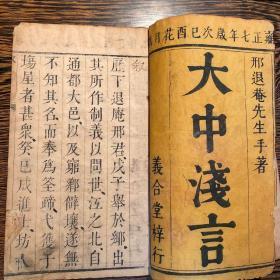 雍正七年歲次己酉花月
邢退菴先生手著
大中淺言
義合堂梓行
叙
歷下退庵邢君戊子舉於鄉出
其所作制義以問世江之北自
通都大邑以及窮鄉僻壤遂無
不知其名而奉為筌蹄弋獲于
場屋者甚衆癸巳成進士